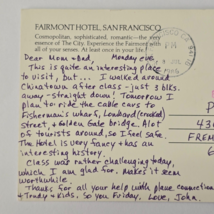 FAIRMONT HOTEL, SAN FRANCISCO
Cosmopolitan, sophisticated, romantic—the very
essence of The City. Experience the Fairmont with
all of your senses
Dear Mom & Dad, Monday eve
This is quite an interesting place
to visit, but... I walked around
Chinatown after class - just 3 blks.
away - straight down! Tomorrow I
plan to ride the cable cars to
Fisherman's wharf, Lombard (crooked)
street, & Golden Gate bridge. Alot
of tourists around, so I feel safe.
The Hotel is very fancy & has an
interesting history.
Class was rather challenging today,
which I am glad for. makes it seem
worthwhile.
Thanks for all your help with plane connection
& Trudy & Kids. So you Friday, Love, John.
P
43
FREM
6